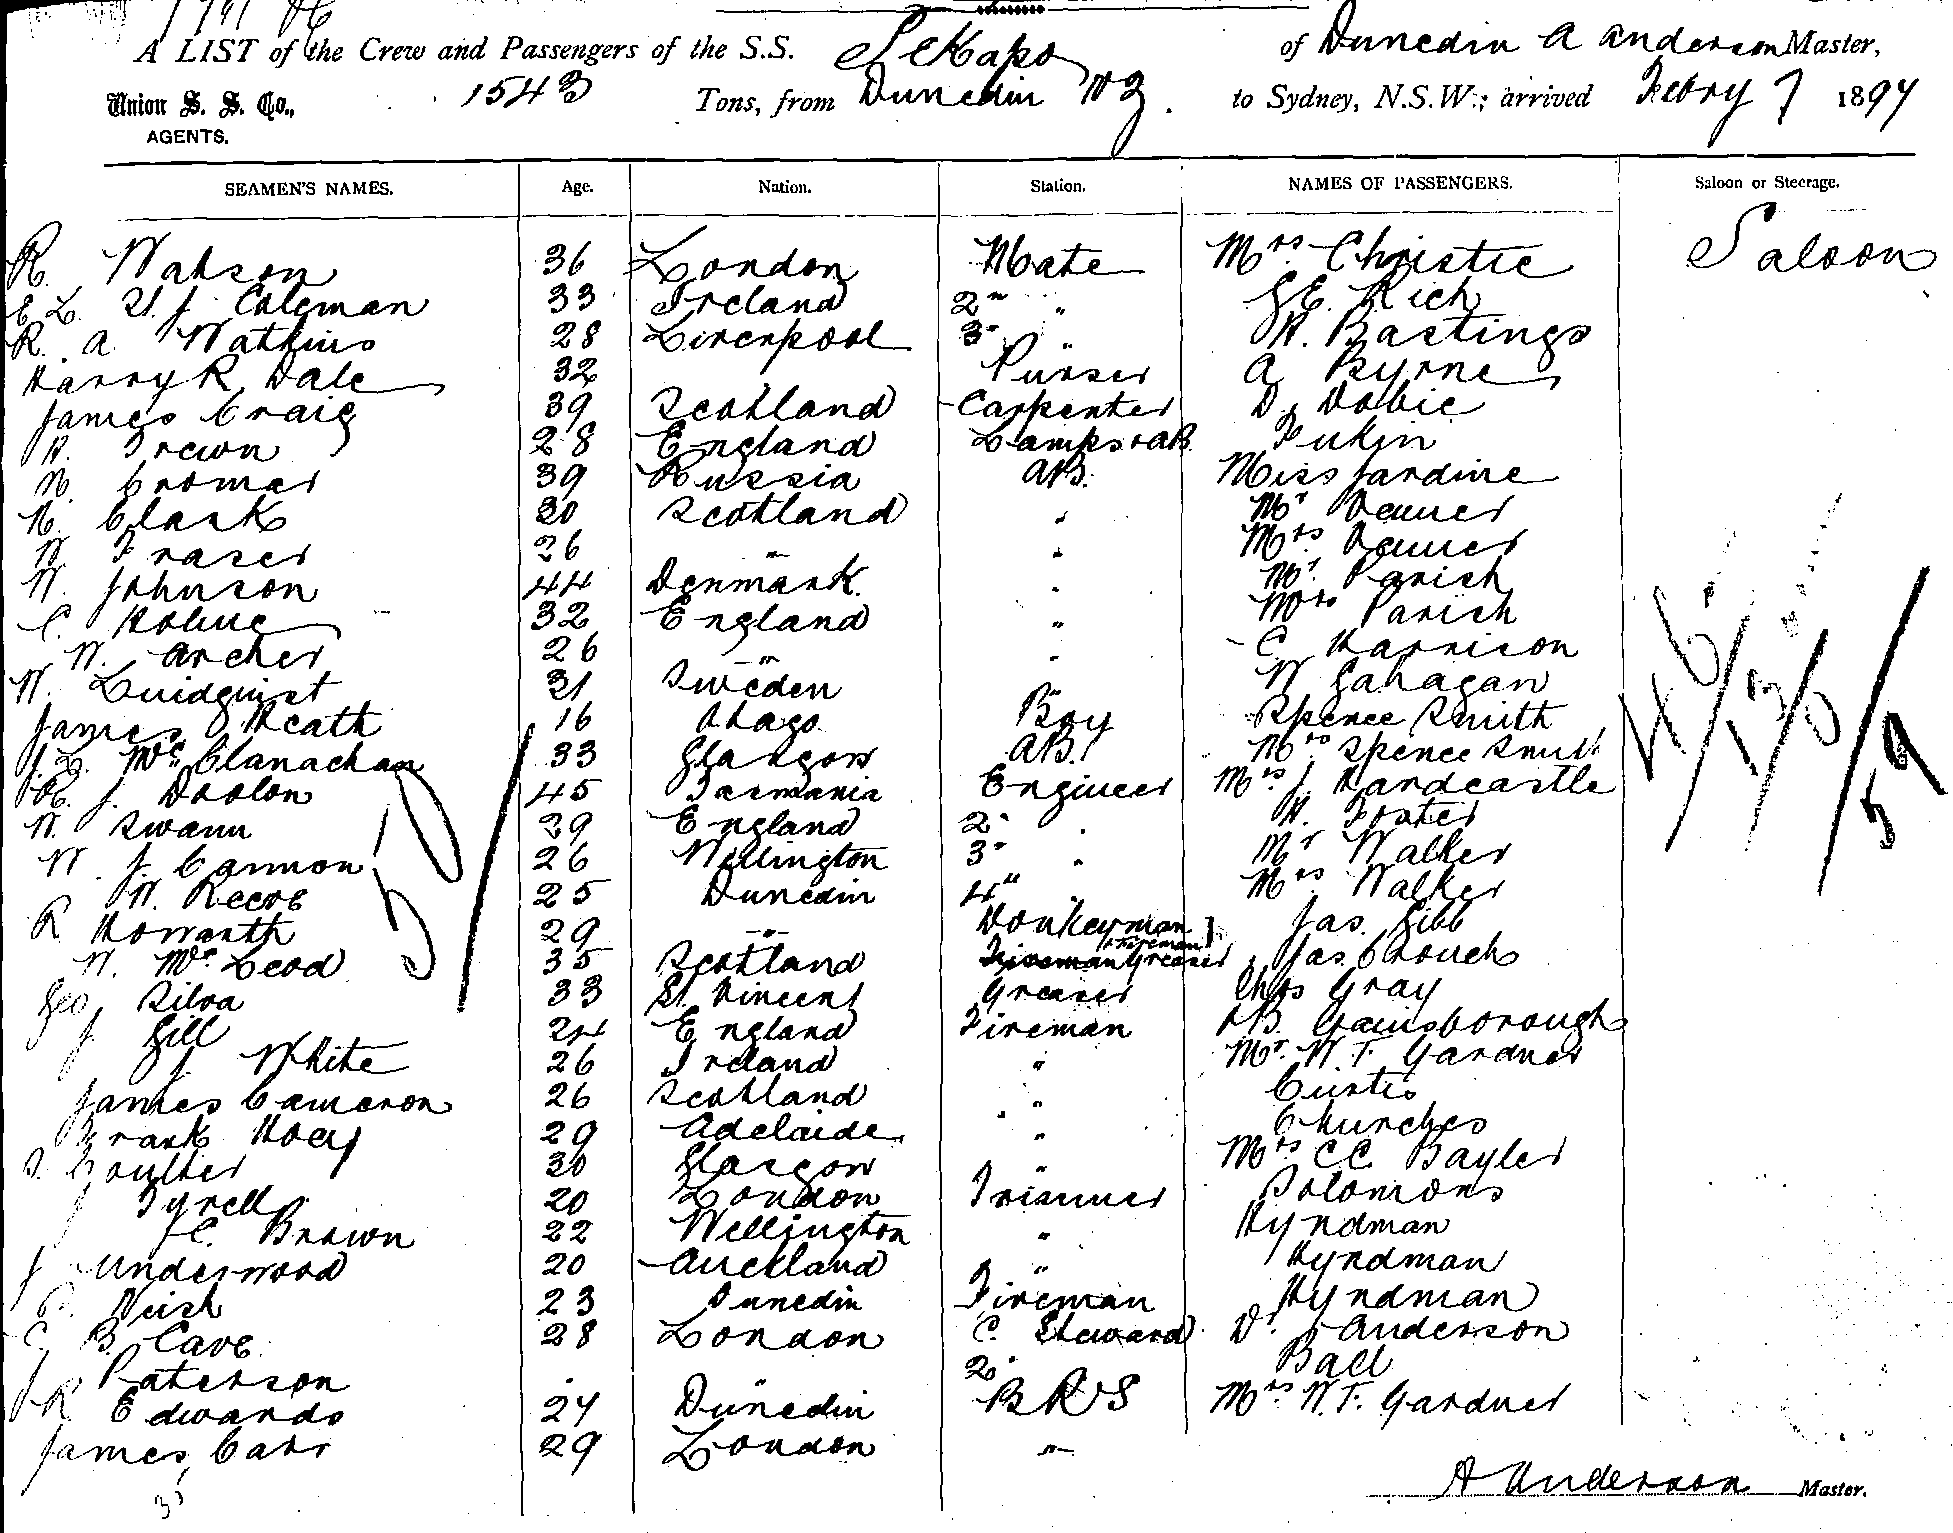 A LIST of the Crew and Passengers of the S.S. Tekapo of Dunedin A Anderson Master,
Union S. S. Co., AGENTS. 1543 Tons, from Dunedin NZ. to Sydney, N.S.W.; arrived Febry 7 1897
SEAMEN'S NAMES. Age. Nation. Station. NAMES OF PASSENGERS. Saloon or Steerage.
R. Watson 36 London Mate Mrs Christie Saloon
E L. St. J. Coleman 33 Ireland 2" " G E. Rich
R. A Watkins 28 Liverpool 3" " H. Bastings
Harry R Dale 32 Purser A Byrne
James Craig 39 Scotland Carpenter D. Dobie
H. Trewn 28 England Lamps & AB. Fukin
N. Cromar 39 Russia AB. Miss Jardine
N. Clark 30 Scotland " Mr Venner
W Fraser 26 " " Mrs Venner
W. Johnson 44 Denmark " Mr Parish
C. Holme 32 England " Mrs Parish
W. Archer 26 " " C Harrison
W. Lindqvist 31 Sweden " W Gahagan
James Heath 16 Otago Boy Spence Smith
J. L. McClanachan 33 Glasgow AB. Mrs Spence Smith
R. J. Doolon 45 Tasmania Engineer Mrs J Hardcastle
W. Swann 29 England 2" " H. Foster
W J. Cannon 26 Wellington 3" " Mr Walker
W. Reeve 25 Dunedin 4" " Mrs Walker
R Howarth 29 " Donkeyman & Fireman Jas. Gibb
W. McLeod 35 Scotland Greaser Jas Crouch
Geo Silva 33 St. Vincent Greaser Chas Gray
J. Gill 24 England Fireman B. Gainsborough
J. White 26 Ireland " Mr. W. T. Gardner
James Cameron 26 Scotland " Curtis
Frank Hoey 29 Adelaide " Churches
S. Coulter 30 Glasgow " Mrs C C Bayler
J Tyrell 20 London Trimmer Solomons
C. Brown 22 Wellington " Hyndman
J Underwood 20 Auckland " Hyndman
Neish 23 Dunedin Fireman Hyndman
C B Cave 28 London C. Steward Dr. J Anderson
J Paterson " " 2" Ball
R. Edwards 24 Dunedin BRS Mrs W. T. Gardner
James Carr 29 London "
A Anderson Master.